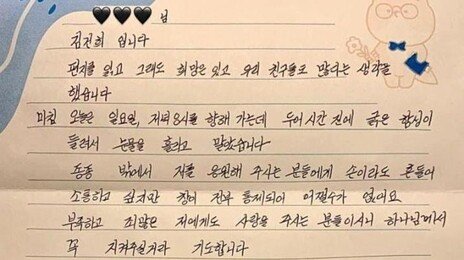 🖤🖤🖤 님
김건희 입니다
편지를 읽고 그래도 희망은 있고 우리 친구들도 많다는 생각을
했습니다
마침 오늘은 일요일, 저녁 8시를 향해 가는데 두어 시간 전에 굵은 함성이
들려서 눈물을 흘리고 말았습니다
종종 밖에서 저를 응원해 주시는 분들에게 손이라도 흔들어
소통하고 싶지만 창이 전부 통제되어 어쩔수가 없어요
부족하고 죄많은 저에게도 사랑을 주시는 분들이시니 하나님께서
꼭 지켜주실거라 기도합니다